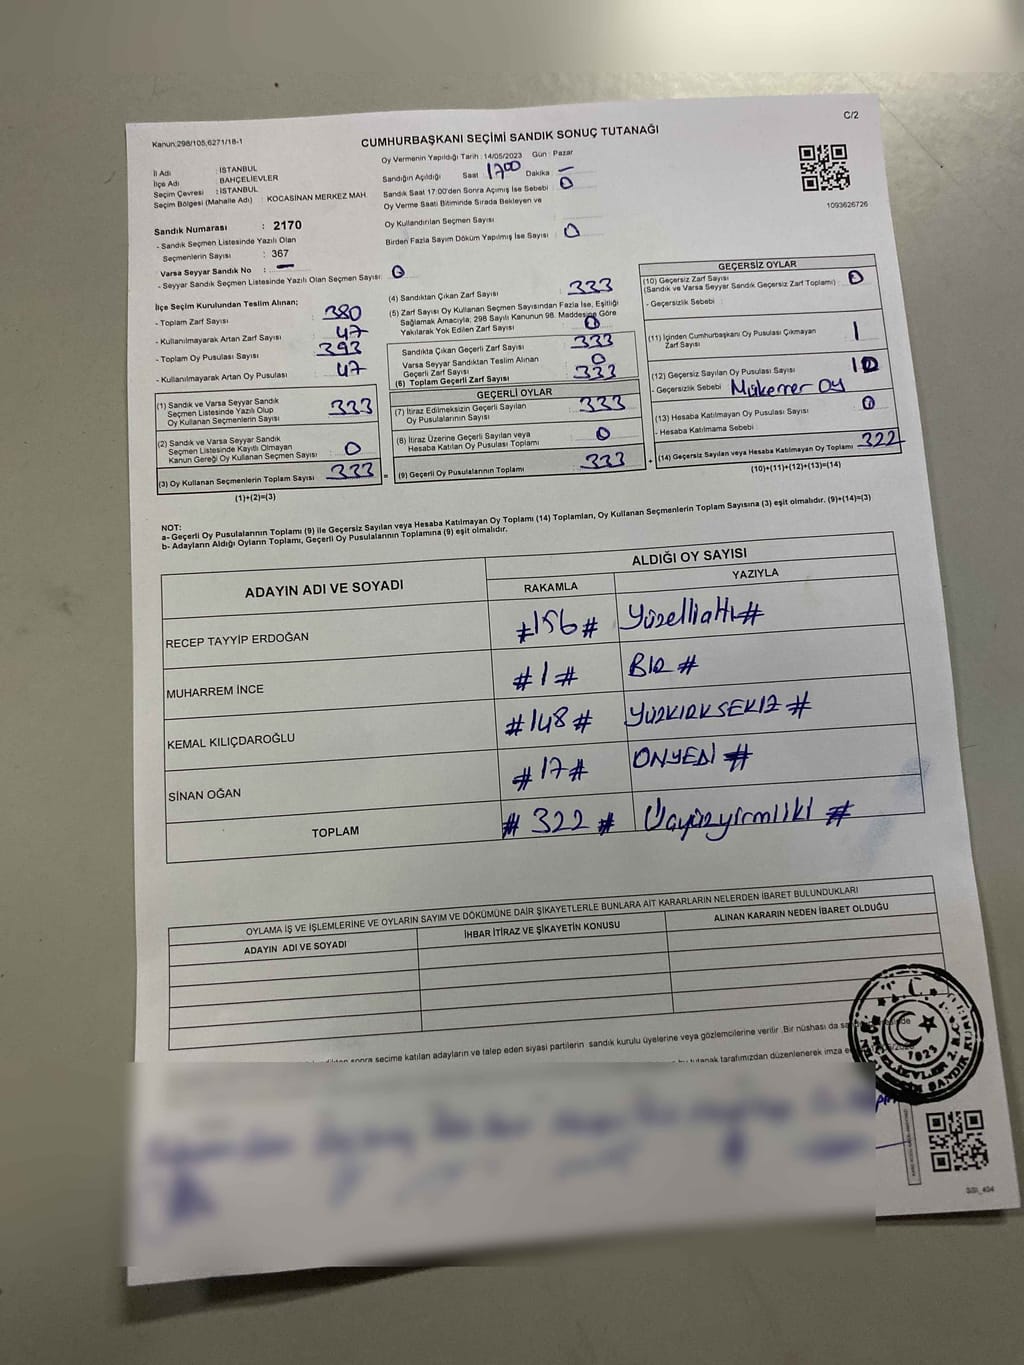 Kanun:298/105,6271/18-1
C/2
CUMHURBAŞKANI SEÇİMİ SANDIK SONUÇ TUTANAĞI
İl Adı : İSTANBUL
İlçe Adı : BAHÇELİEVLER
Seçim Çevresi : İSTANBUL
Seçim Bölgesi (Mahalle Adı) : KOCASİNAN MERKEZ MAH.
Oy Vermenin Yapıldığı Tarih : 14/05/2023 Gün : Pazar
Sandığın Açıldığı Saat 17:00 Dakika —
Sandık Saat 17:00'den Sonra Açımış İse Sebebi : 0
Oy Verme Saati Bitiminde Sırada Bekleyen ve
Oy Kullandırılan Seçmen Sayısı :
Birden Fazla Sayım Döküm Yapılmış İse Sayısı : 0
1093626726
Sandık Numarası : 2170
- Sandık Seçmen Listesinde Yazılı Olan
Seçmenlerin Sayısı : 367
Varsa Seyyar Sandık No : —
- Seyyar Sandık Seçmen Listesinde Yazılı Olan Seçmen Sayısı: 0
İlçe Seçim Kurulundan Teslim Alınan;
- Toplam Zarf Sayısı : 380
- Kullanılmayarak Artan Zarf Sayısı : 47
- Toplam Oy Pusulası Sayısı : 393
- Kullanılmayarak Artan Oy Pusulası : 47
(1) Sandık ve Varsa Seyyar Sandık
Seçmen Listesinde Yazılı Olup
Oy Kullanan Seçmenlerin Sayısı : 333
(2) Sandık ve Varsa Seyyar Sandık
Seçmen Listesinde Kayıtlı Olmayan
Kanun Gereği Oy Kullanan Seçmen Sayısı : 0
(3) Oy Kullanan Seçmenlerin Toplam Sayısı : 333
(1)+(2)=(3)
(4) Sandıktan Çıkan Zarf Sayısı : 333
(5) Zarf Sayısı Oy Kullanan Seçmen Sayısından Fazla İse, Eşitliği
Sağlamak Amacıyla; 298 Sayılı Kanunun 98. Maddesine Göre
Yakılarak Yok Edilen Zarf Sayısı : 0
Sandıkta Çıkan Geçerli Zarf Sayısı : 333
Varsa Seyyar Sandıktan Teslim Alınan
Geçerli Zarf Sayısı : 0
(6) Toplam Geçerli Zarf Sayısı : 333
GEÇERLİ OYLAR
(7) İtiraz Edilmeksizin Geçerli Sayılan
Oy Pusulalarının Sayısı : 333
(8) İtiraz Üzerine Geçerli Sayılan veya
Hesaba Katılan Oy Pusulası Toplamı : 0
= (9) Geçerli Oy Pusulalarının Toplamı : 333
GEÇERSİZ OYLAR
(10) Geçersiz Zarf Sayısı
(Sandık ve Varsa Seyyar Sandık Geçersiz Zarf Toplamı) : 0
- Geçersizlik Sebebi :
(11) İçinden Cumhurbaşkanı Oy Pusulası Çıkmayan
Zarf Sayısı : 1
(12) Geçersiz Sayılan Oy Pusulası Sayısı : 10
- Geçersizlik Sebebi : Mükerrer Oy
(13) Hesaba Katılmayan Oy Pusulası Sayısı : 0
- Hesaba Katılmama Sebebi :
+ (14) Geçersiz Sayılan veya Hesaba Katılmayan Oy Toplamı : 322
(10)+(11)+(12)+(13)=(14)
NOT:
a- Geçerli Oy Pusulalarının Toplamı (9) ile Geçersiz Sayılan veya Hesaba Katılmayan Oy Toplamı (14) Toplamları, Oy Kullanan Seçmenlerin Toplam Sayısına (3) eşit olmalıdır. (9)+(14)=(3)
b- Adayların Aldığı Oyların Toplamı, Geçerli Oy Pusulalarının Toplamına (9) eşit olmalıdır.
ADAYIN ADI VE SOYADI
ALDIĞI OY SAYISI
RAKAMLA YAZIYLA
RECEP TAYYİP ERDOĞAN #156# Yüzellialtı#
MUHARREM İNCE #1# BİR #
KEMAL KILIÇDAROĞLU #148# YÜZKIRKSEKİZ #
SİNAN OĞAN #17# ONYEDİ #
TOPLAM # 322 # Üçyüzyirmiiki #
OYLAMA İŞ VE İŞLEMLERİNE VE OYLARIN SAYIM VE DÖKÜMÜNE DAİR ŞİKAYETLERLE BUNLARA AİT KARARLARIN NELERDEN İBARET BULUNDUKLARI
ADAYIN ADI VE SOYADI İHBAR İTİRAZ VE ŞİKAYETİN KONUSU ALINAN KARARIN NEDEN İBARET OLDUĞU
sonra seçime katılan adayların ve talep eden siyasi partilerin sandık kurulu üyelerine veya gözlemcilerine verilir. Bir nüshası da
tutanak tarafımızdan düzenlenerek imza
T.C.
1923
SSİ_404